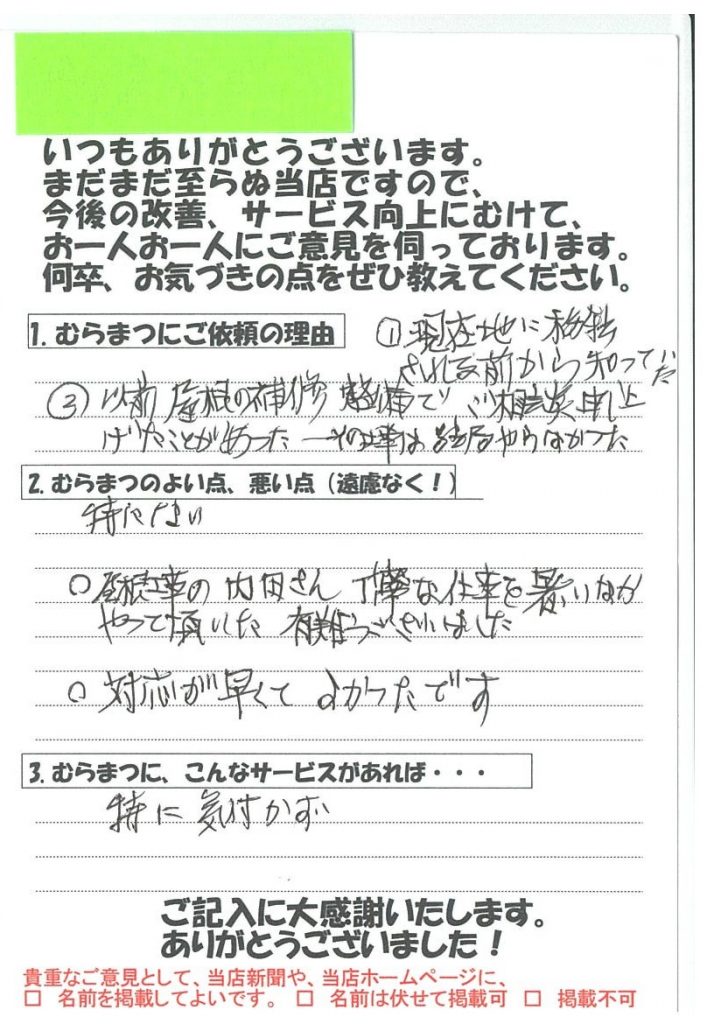 いつもありがとうございます。
まだまだ至らぬ当店ですので、
今後の改善、サービス向上にむけて、
お一人お一人にご意見を伺っております。
何卒、お気づきの点をぜひ教えてください。
1. むらまつにご依頼の理由
① 現在地に移転
される前から知っていた
③ 以前 屋根の補修 整備で ご相談申し上
げたことがあった ーその時は 結局やらなかった
2. むらまつのよい点、悪い点（遠慮なく！）
特にない
○ 屋根工事の 内田さん 丁寧な仕事を 暑いなか
やって頂いた 有難うございました
○ 対応が早くて よかったです
3. むらまつに、こんなサービスがあれば・・・
特に 気付かず
ご記入に大感謝いたします。
ありがとうございました！
貴重なご意見として、当店新聞や、当店ホームページに、
□ 名前を掲載してよいです。 □ 名前は伏せて掲載可 □ 掲載不可